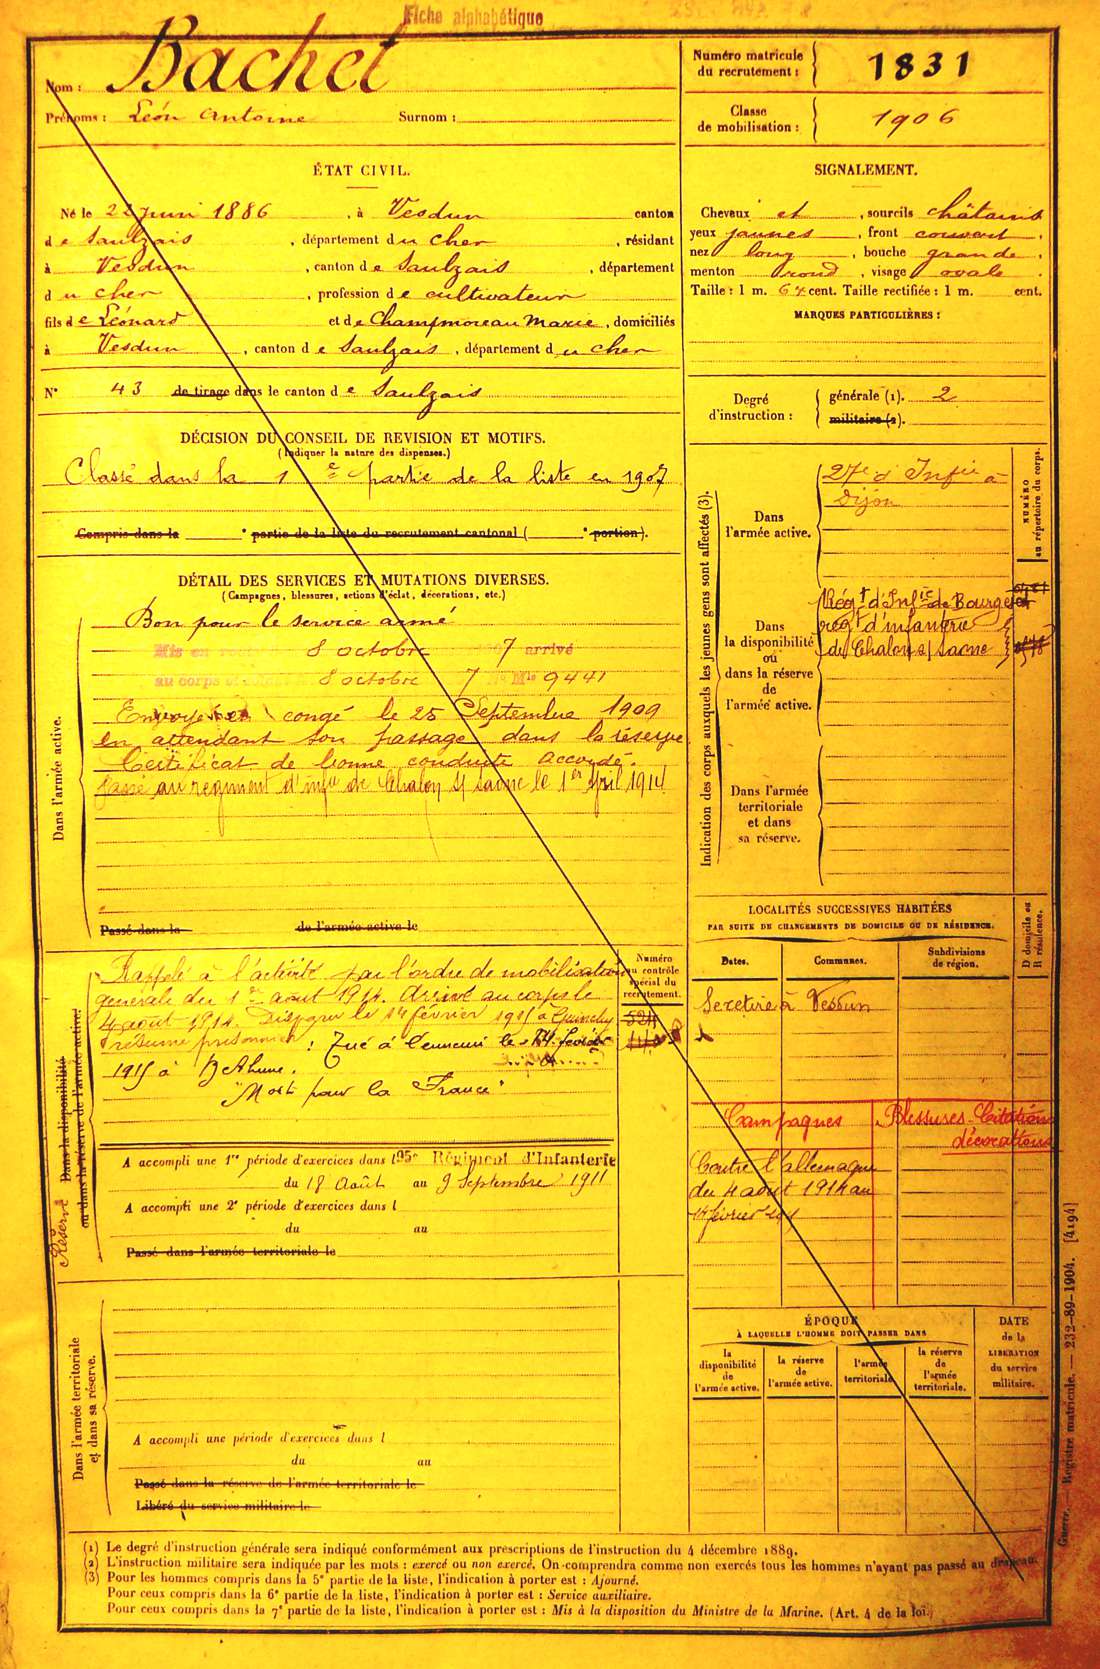 Fiche alphabétique
Nom : Bachet
Prénoms : Léon Antoine Surnom :
Numéro matricule du recrutement : 1831
Classe de mobilisation : 1906
ÉTAT CIVIL.
Né le 22 juin 1886, à Vesdun canton
de Saulzais, département du cher, résidant
à Vesdun, canton de Saulzais, département
du cher, profession de cultivateur
fils de Léonard et de Champmoreau Marie, domiciliés
à Vesdun, canton de Saulzais, département du cher
N° 43 de tirage dans le canton de Saulzais
SIGNALEMENT.
Cheveux et, sourcils châtains
yeux jaunes, front couvert,
nez long, bouche grande,
menton rond, visage ovale.
Taille : 1 m. 64 cent. Taille rectifiée : 1 m. cent.
MARQUES PARTICULIÈRES :
Degré d'instruction :
générale (1). 2
militaire (2).
DÉCISION DU CONSEIL DE REVISION ET MOTIFS.
(Indiquer la nature des dispenses.)
Classé dans la 1e partie de la liste en 1907
Compris dans la e partie de la liste du recrutement cantonal ( e portion).
DÉTAIL DES SERVICES ET MUTATIONS DIVERSES.
(Campagnes, blessures, actions d'éclat, décorations, etc.)
Dans l'armée active.
Bon pour le service armé
Mis en 8 octobre 1907 arrivé
au corps 8 octobre 7 N° Mle 9441
Envoyé en congé le 25 Septembre 1909
en attendant son passage dans la réserve
Certificat de bonne conduite accordé.
Passé au régiment d'infie de Chalon s/ Saone le 1er Avril 1914
Passé dans la de l'armée active le
Indication des corps auxquels les jeunes gens sont affectés (3).
NUMÉRO au répertoire du corps.
Dans l'armée active.
27e d'Infie à
Dijon
Dans la disponibilité ou dans la réserve de l'armée active.
Régt d'Infie de Bourges
régt d'infanterie
de Chalon s/ Saone
Dans l'armée territoriale et dans sa réserve.
LOCALITÉS SUCCESSIVES HABITÉES
PAR SUITE DE CHANGEMENTS DE DOMICILE OU DE RÉSIDENCE.
Dates. Communes. Subdivisions de région. D domicile ou R résidence.
Se retire à Vesdun
Dans la disponibilité
ou dans la réserve de l'armée active.
Réserve
Numéro au contrôle spécial du recrutement.
Rappelé à l'activité par l'ordre de mobilisation
générale du 1er août 1914. Arrivé au corps le
4 août 1914. Disparu le 14 février 1915 à Guinchy
présumé prisonnier : Tué à l'ennemi le 14 février
1915 à Béthune.
"Mort pour la France"
A accompli une 1re période d'exercices dans l 95e Régiment d'Infanterie
du 18 Août au 9 Septembre 1911
A accompli une 2e période d'exercices dans l
du au
Passé dans l'armée territoriale le
Campagnes
Blessures, Citations,
décorations
Contre l'allemagne
du 4 août 1914 au
14 février 1915
Dans l'armée territoriale
et dans sa réserve.
A accompli une période d'exercices dans l
du au
Passé dans la réserve de l'armée territoriale le
Libéré du service militaire le
ÉPOQUE
À LAQUELLE L'HOMME DOIT PASSER DANS
la disponibilité de l'armée active.
la réserve de l'armée active.
l'armée territoriale.
la réserve de l'armée territoriale.
DATE de la LIBÉRATION du service militaire.
Guerre. — Registre matricule. — 232-89-1904. [4194]
(1) Le degré d'instruction générale sera indiqué conformément aux prescriptions de l'instruction du 4 décembre 1889.
(2) L'instruction militaire sera indiquée par les mots : exercé ou non exercé. On comprendra comme non exercés tous les hommes n'ayant pas passé au drapeau.
(3) Pour les hommes compris dans la 5e partie de la liste, l'indication à porter est : Ajourné.
Pour ceux compris dans la 6e partie de la liste, l'indication à porter est : Service auxiliaire.
Pour ceux compris dans la 7e partie de la liste, l'indication à porter est : Mis à la disposition du Ministre de la Marine. (Art. 4 de la loi.)